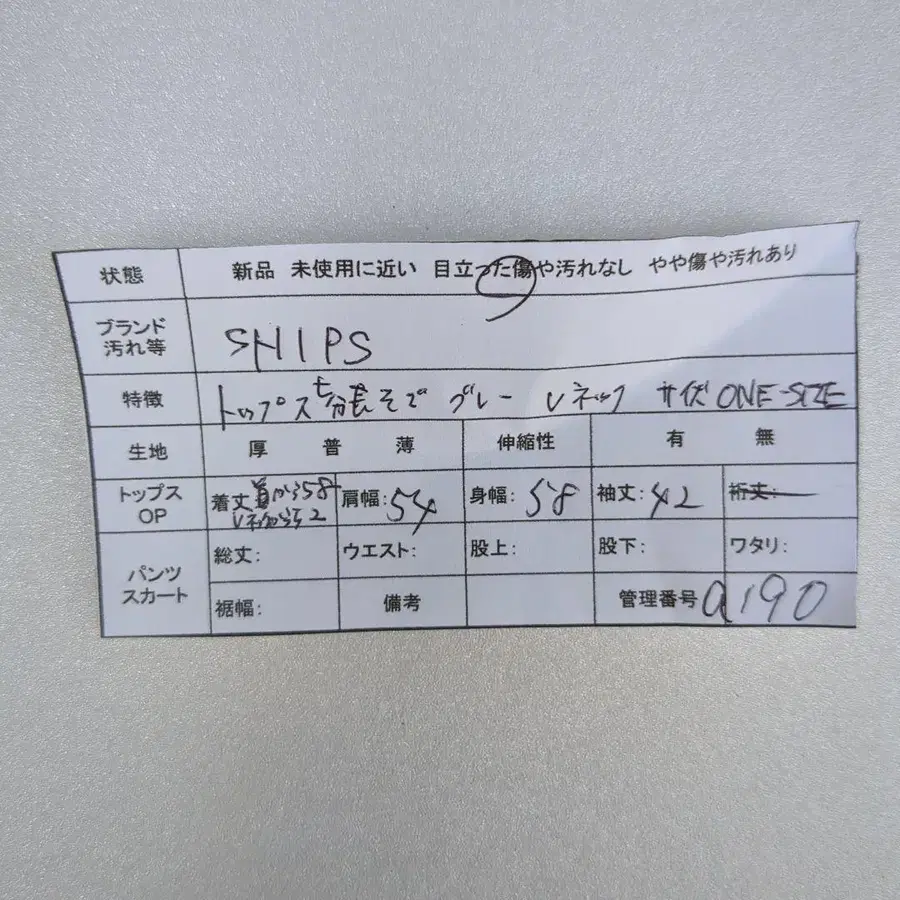 状態 新品 未使用に近い 目立った傷や汚れなし やや傷や汚れあり
ブランド
汚れ等 SHIPS
特徴 トップス七分長そで グレー Vネック サイズ ONE-SIZE
生地 厚 普 薄 伸縮性 有 無
トップス
OP 着丈 首から58 肩幅: 54 身幅: 58 袖丈: 42 裄丈:
Vネックから52
パンツ
スカート 総丈: ウエスト: 股上: 股下: ワタリ:
裾幅: 備考 管理番号 a190